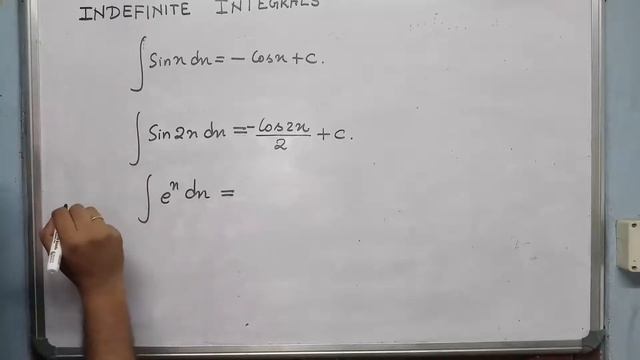 INDEFINITE INTEGRALS
∫ Sin x dx = - Cos x + C.
∫ Sin 2x dx = - Cos 2x / 2 + C.
∫ e^x dx =